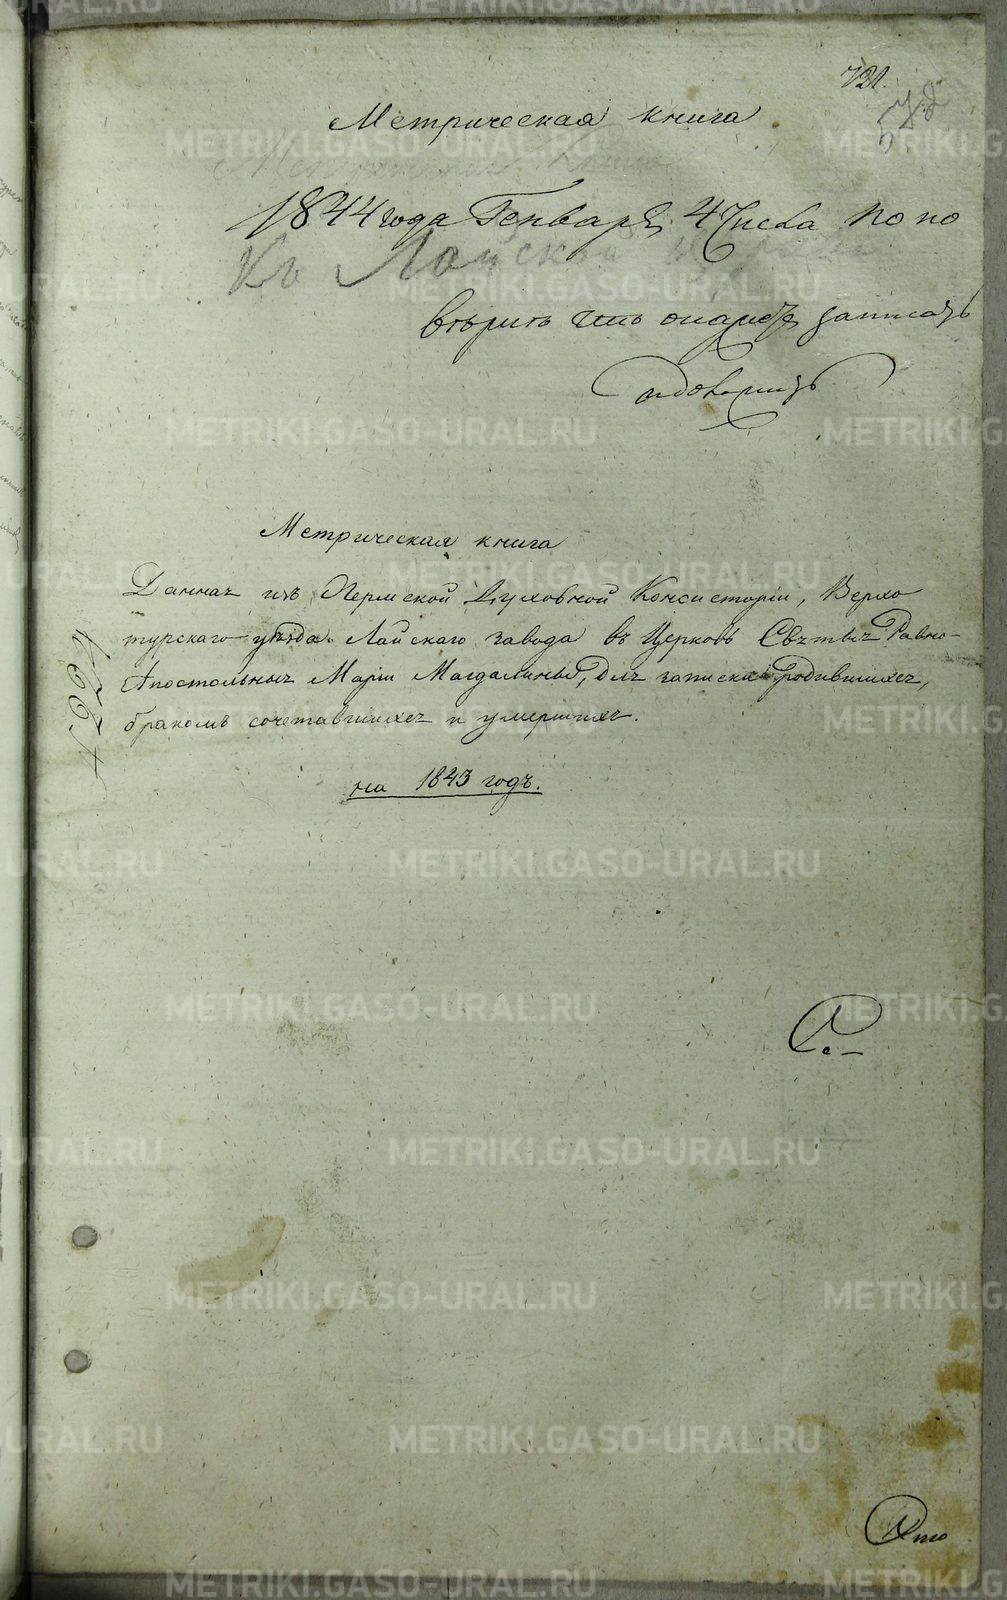 721.
578
Метрическая книга
Метрическая книга
1844 года Генваря 4 Числа по по
Къ Лайской церкви
вѣрить записать
и доложить
Метрическая книга
Данная изъ Пермской Духовной Консисторіи, Верхо
турскаго уѣзда Лайскаго завода въ Церковь Святыя Равно-
Апостольныя Маріи Магдалины, для записки родившихся,
бракомъ сочетавшихся и умершихъ.
на 1843 годъ.
METRIKI.GASO-URAL.RU